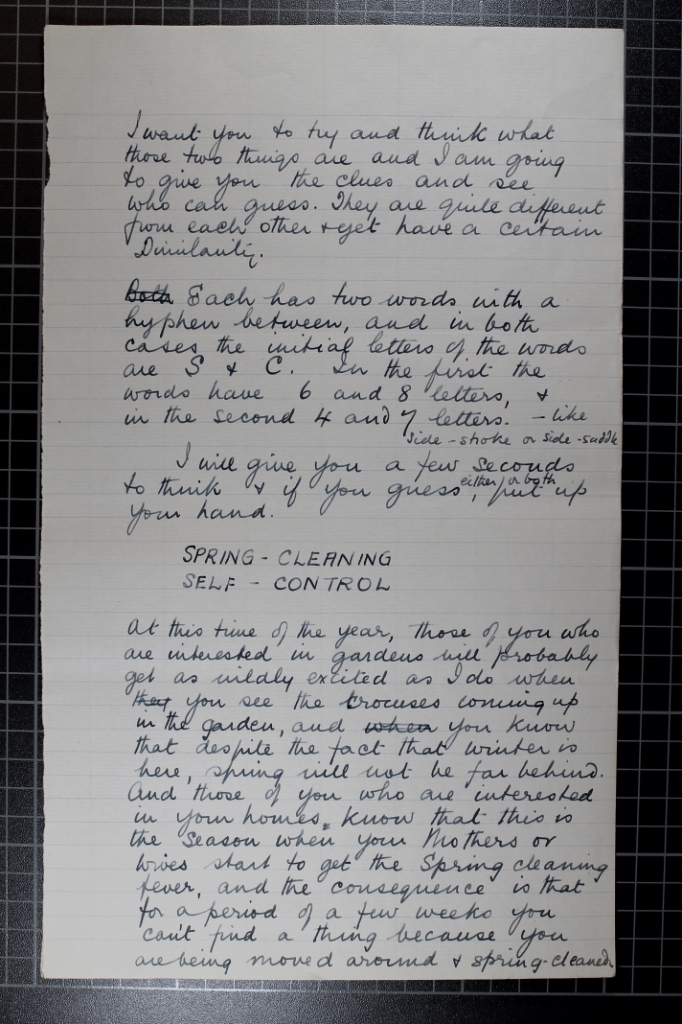 I want you to try and think what
those two things are and I am going
to give you the clues and see
who can guess. They are quite different
from each other + yet have a certain
Similarity.
Both Each has two words with a
hyphen between, and in both
cases the initial letters of the words
are S & C. In the first the
words have 6 and 8 letters, &
in the second 4 and 7 letters. - like
side-stroke or side-saddle
I will give you a few seconds
to think & if you guess either/or both, put up
your hand.
SPRING - CLEANING
SELF - CONTROL
At this time of the year, those of you who
are interested in gardens will probably
get as wildly excited as I do when
they you see the crocuses coming up
in the garden, and when you know
that despite the fact that winter is
here, spring will not be far behind.
And those of you who are interested
in your homes, know that this is
the Season when your Mothers or
Wives start to get the Spring cleaning
fever, and the consequence is that
for a period of a few weeks you
can't find a thing because you
are being moved around & spring-cleaned